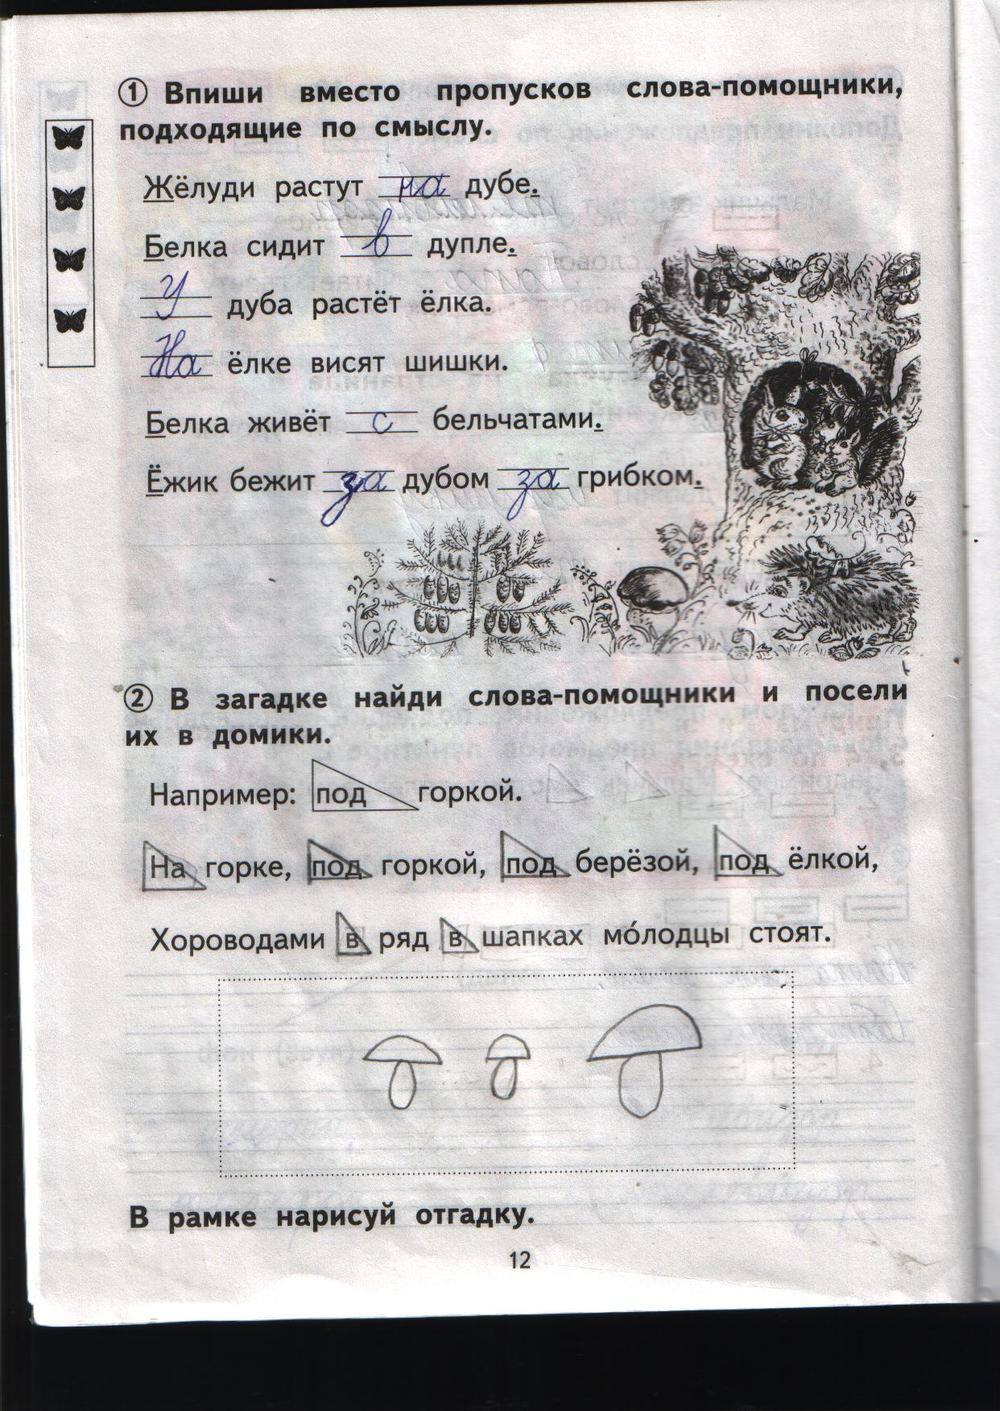 ① Впиши вместо пропусков слова-помощники,
подходящие по смыслу.
Жёлуди растут на дубе.
Белка сидит в дупле.
У дуба растёт ёлка.
На ёлке висят шишки.
Белка живёт с бельчатами.
Ёжик бежит за дубом за грибком.
② В загадке найди слова-помощники и посели
их в домики.
Например: под горкой.
На горке, под горкой, под берёзой, под ёлкой,
Хороводами в ряд в шапках мо́лодцы стоят.
В рамке нарисуй отгадку.
12